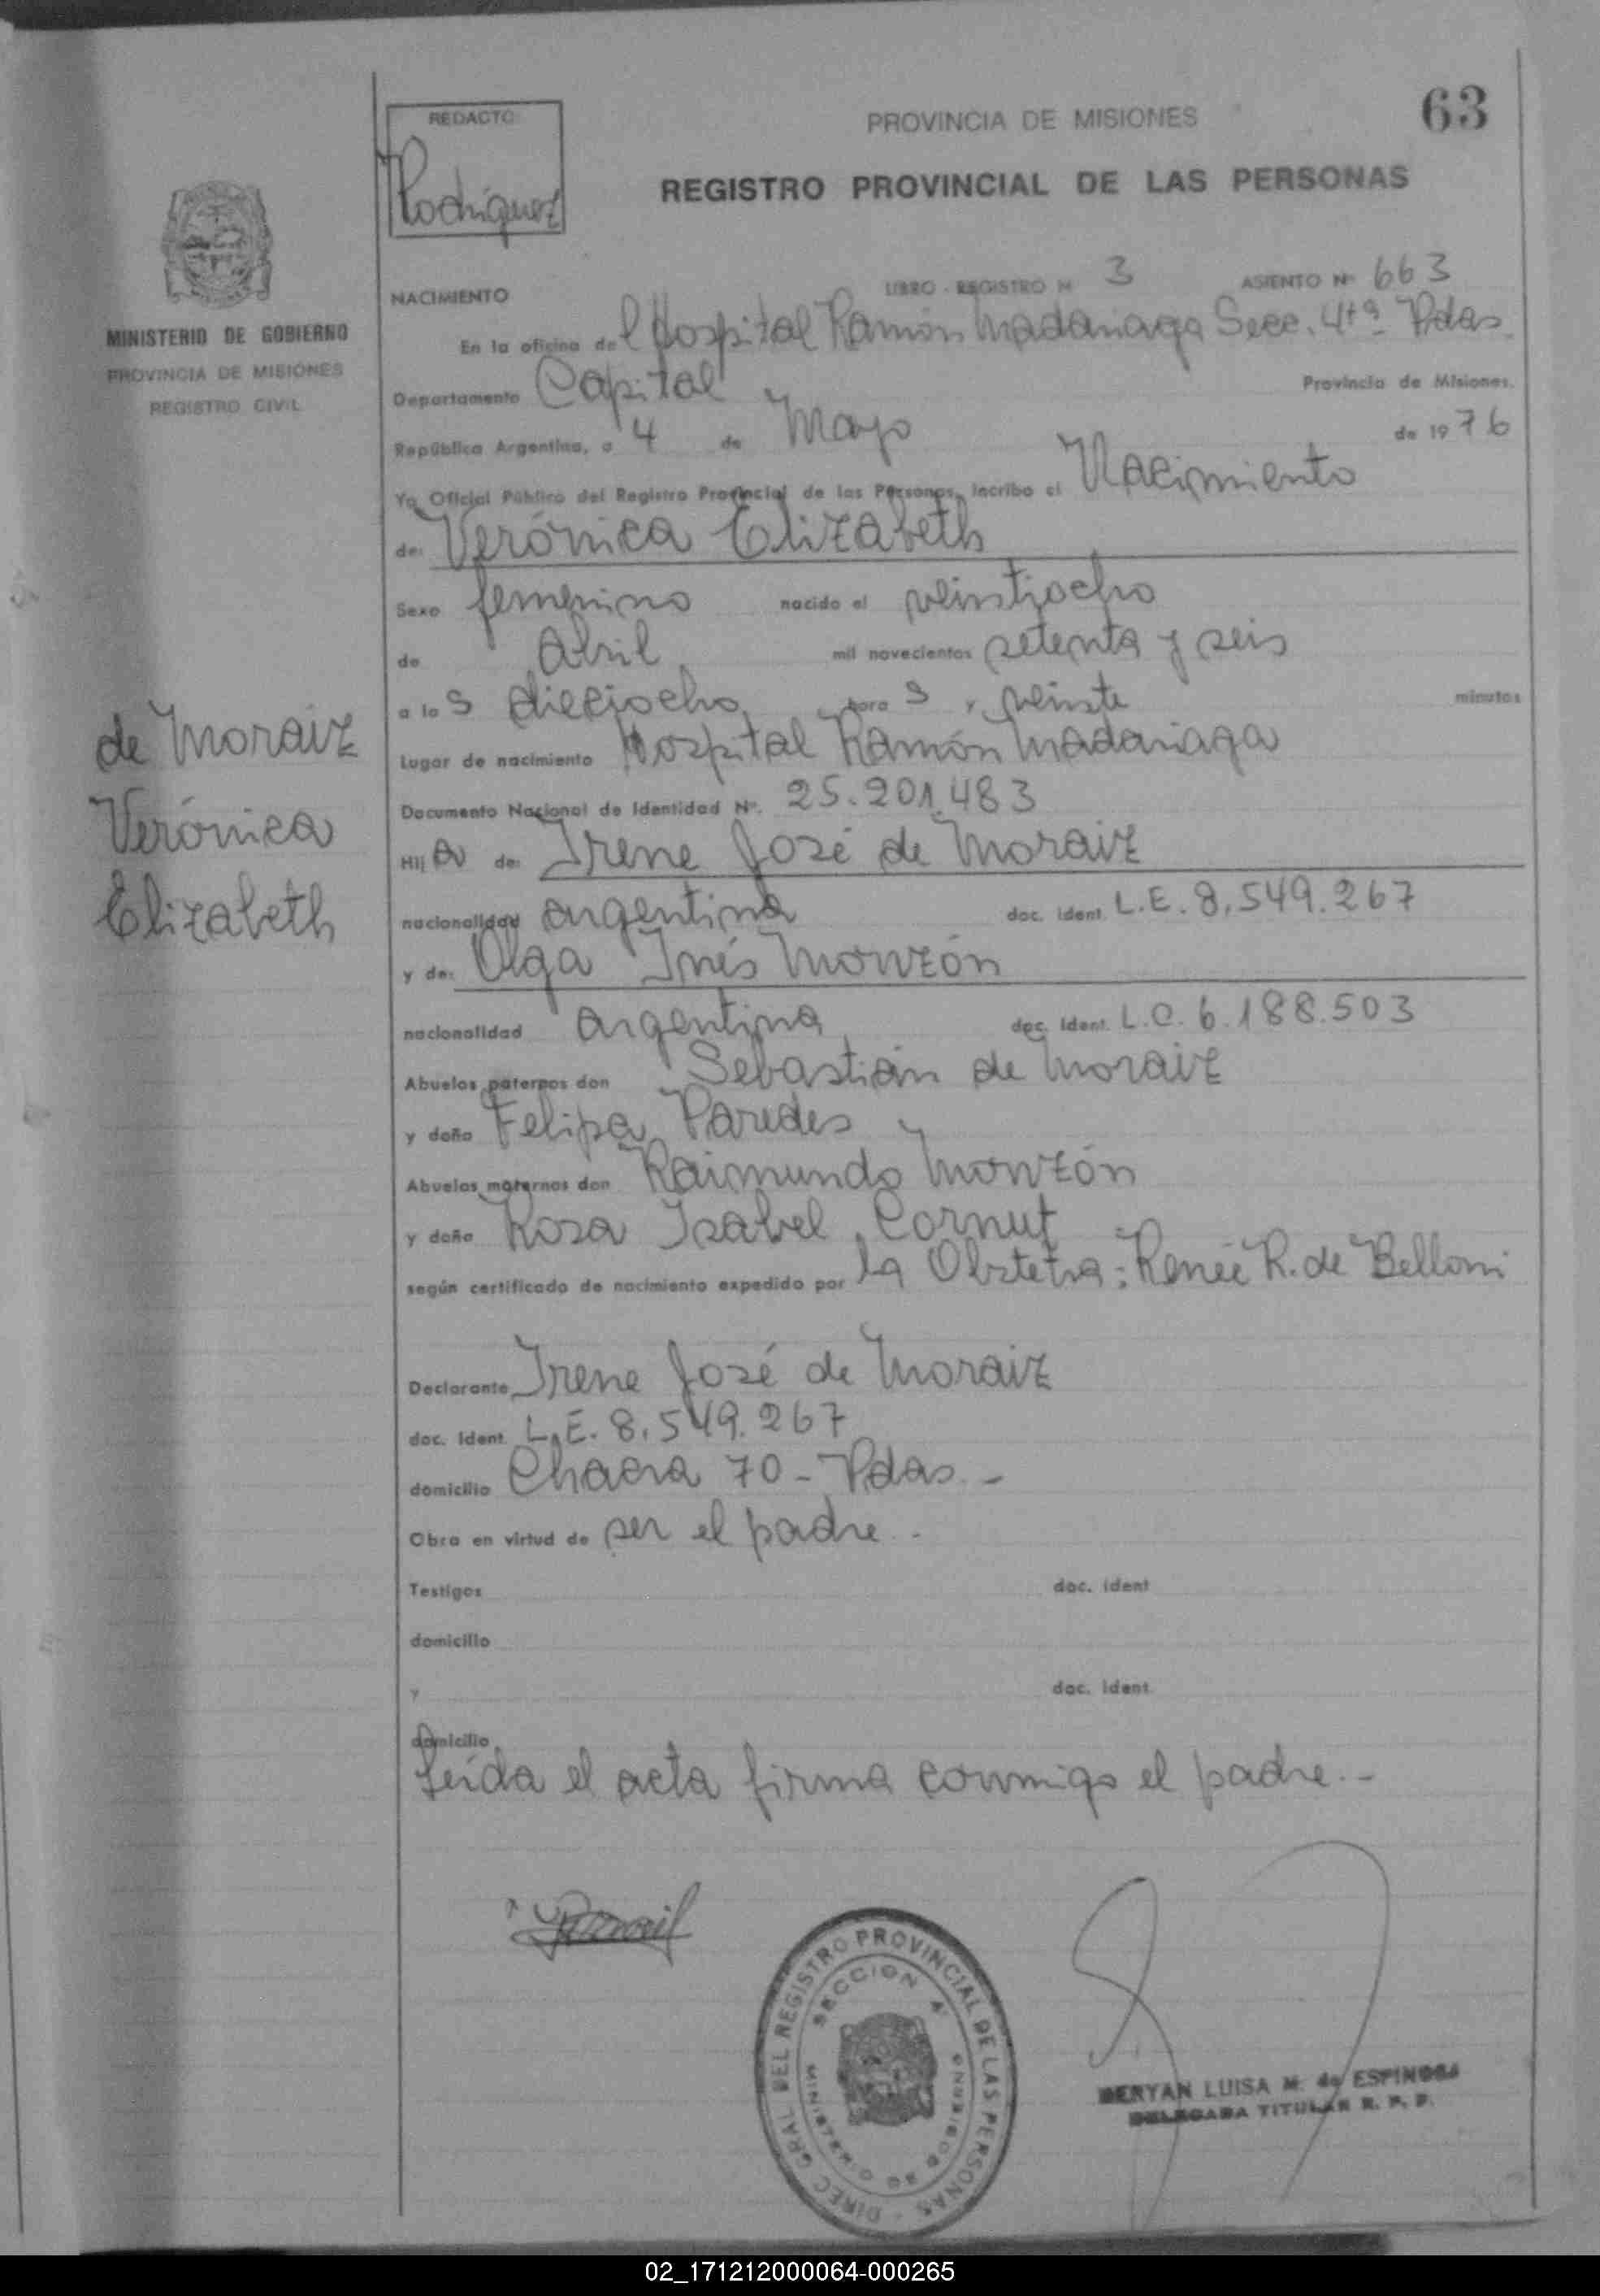 63
REDACTO:
Rodríguez
PROVINCIA DE MISIONES
REGISTRO PROVINCIAL DE LAS PERSONAS
MINISTERIO DE GOBIERNO
PROVINCIA DE MISIONES
REGISTRO CIVIL
NACIMIENTO LIBRO - REGISTRO Nº 3 ASIENTO Nº 663
En la oficina del Hospital Ramón Madariaga Secc. 4tª Pdas.
Departamento Capital Provincia de Misiones.
República Argentina, a 4 de Mayo de 1976
Yo, Oficial Público del Registro Provincial de las Personas, inscribo el Nacimiento
de: Verónica Elizabeth
Sexo femenino nacido el veintiocho
de Abril mil novecientos setenta y seis
a las dieciocho horas y veinte minutos
Lugar de nacimiento Hospital Ramón Madariaga
Documento Nacional de Identidad Nº. 25.201.483
Hija de: Irene José de Moraiz
nacionalidad argentina doc. ident. L.E. 8.549.267
y de: Olga Inés Monzón
nacionalidad argentina doc. ident. L.C. 6.188.503
Abuelos paternos don Sebastián de Moraiz
y doña Felipa Paredes
Abuelos maternos don Raimundo Monzón
y doña Rosa Isabel Cornut
según certificado de nacimiento expedido por la Obstetra: Renée R. de Belloni
de Moraiz
Verónica
Elizabeth
Declarante Irene José de Moraiz
doc. ident. L.E. 8.549.267
domicilio Chacra 70 - Pdas. -
Obra en virtud de ser el padre. -
Testigos doc. ident
domicilio
y doc. ident.
domicilio
Leída el acta firma conmigo el padre. -
DIREC. GRAL. DEL REGISTRO PROVINCIAL DE LAS PERSONAS -
SECCION 4ª
MINISTERIO DE GOBIERNO
LUISA M. de ESPINOSA
DELEGADA TITULAR R. P. P.
02_171212000064-000265